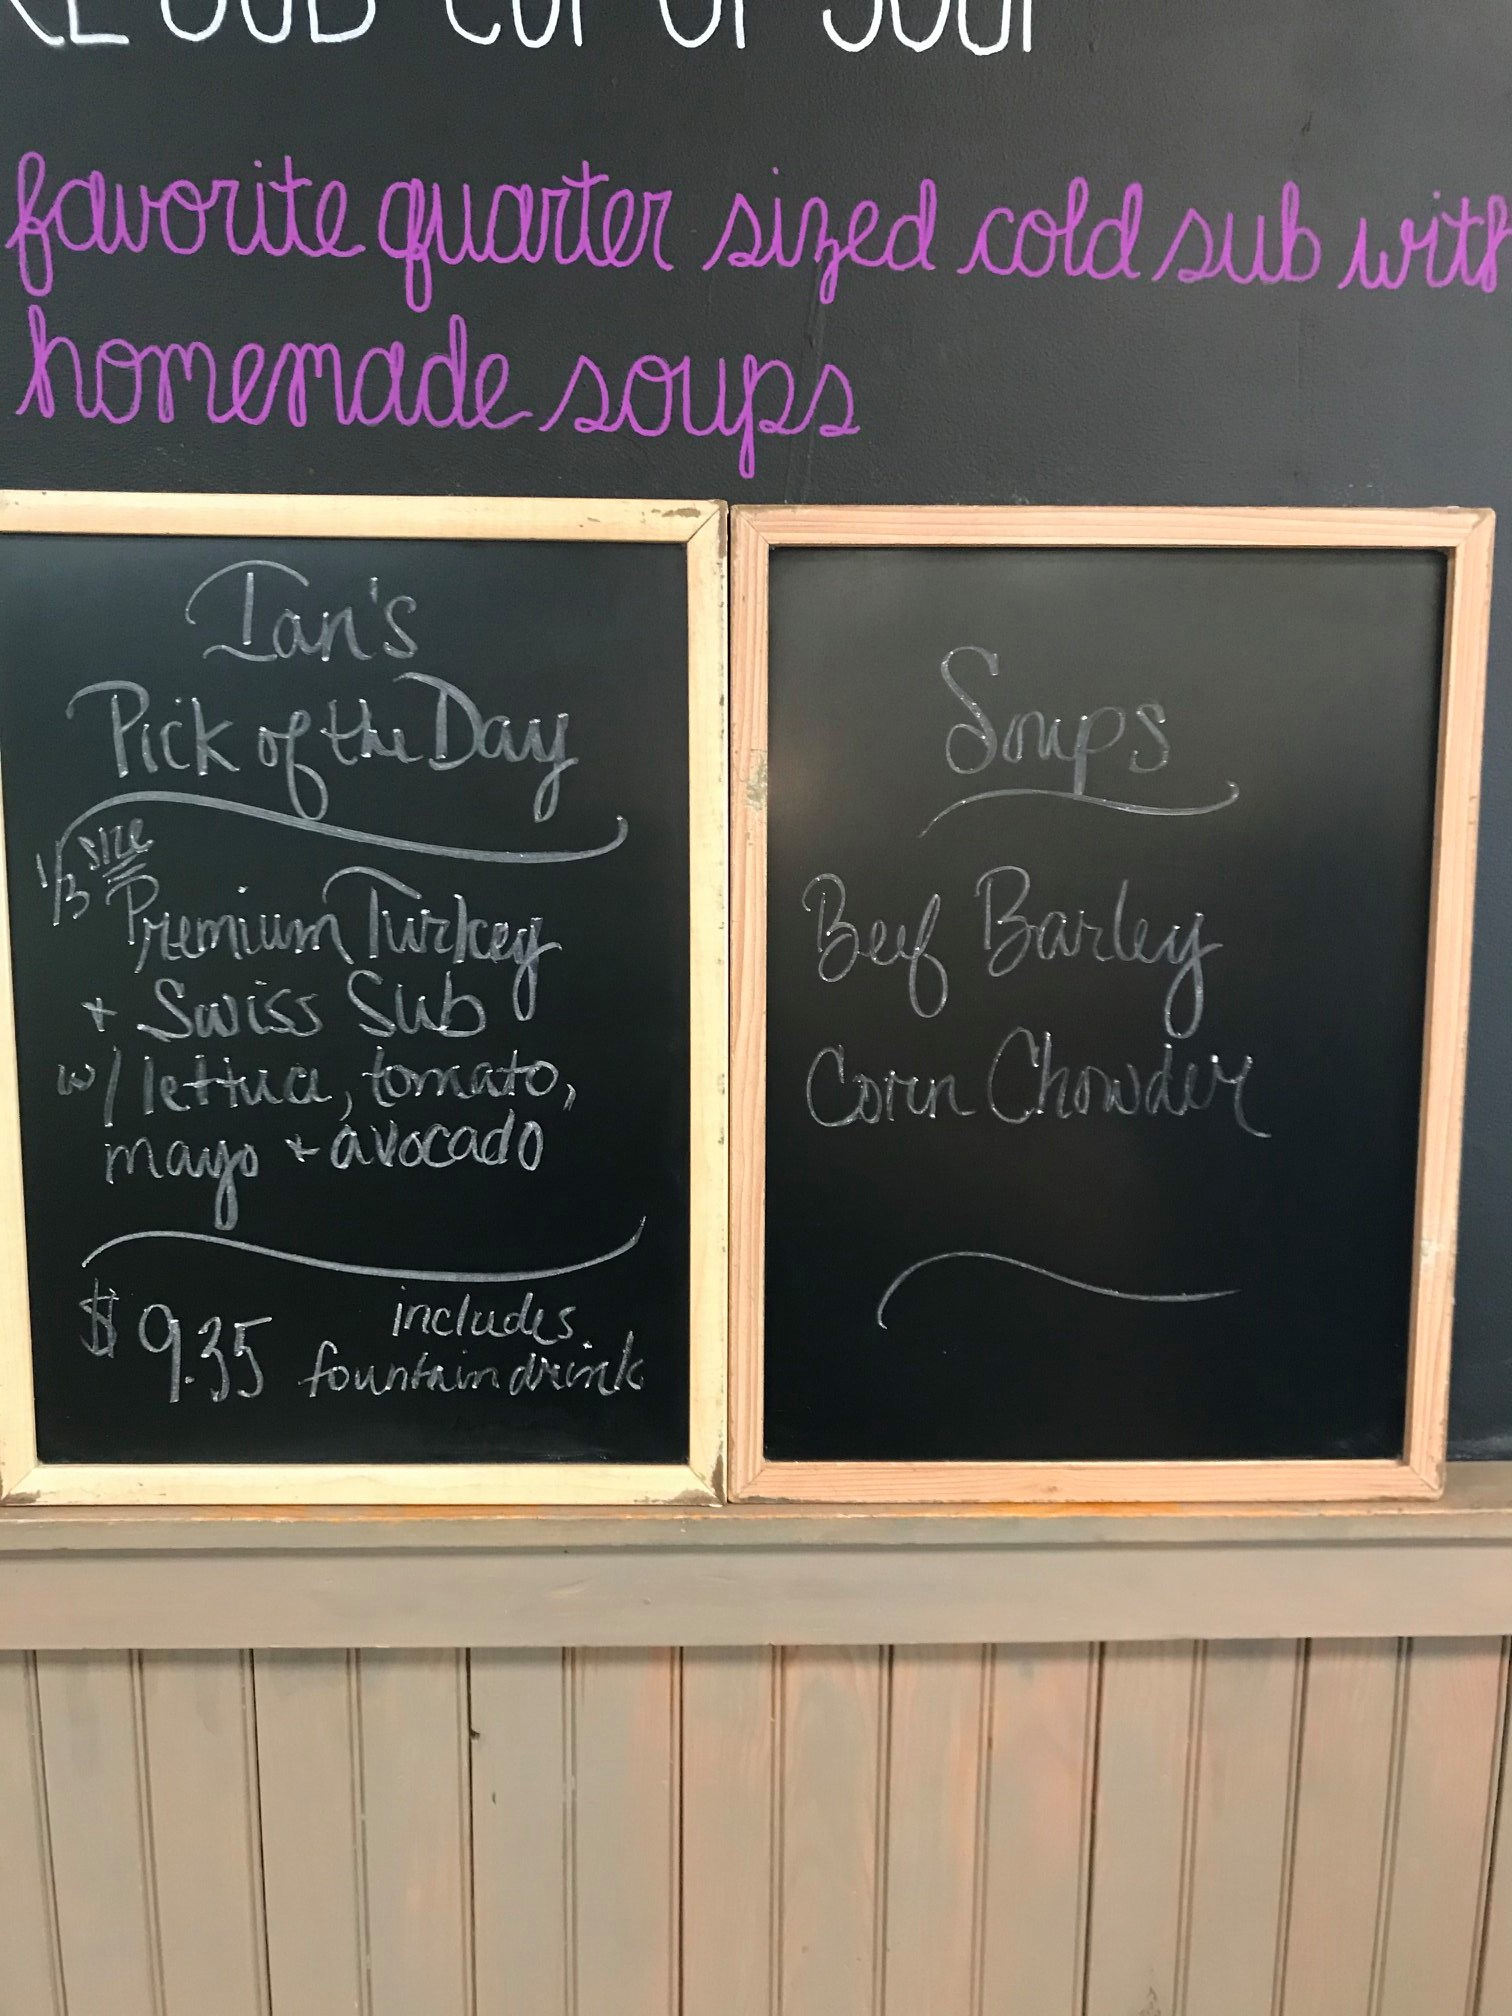 SUB CUP OF SOUP
favorite quarter sized cold sub with
homemade soups
Ian's
Pick of the Day
1/3 size
Premium Turkey
+ Swiss Sub
w/ lettuce, tomato,
mayo + avocado
$9.35 includes
fountain drink
Soups
Beef Barley
Corn Chowder